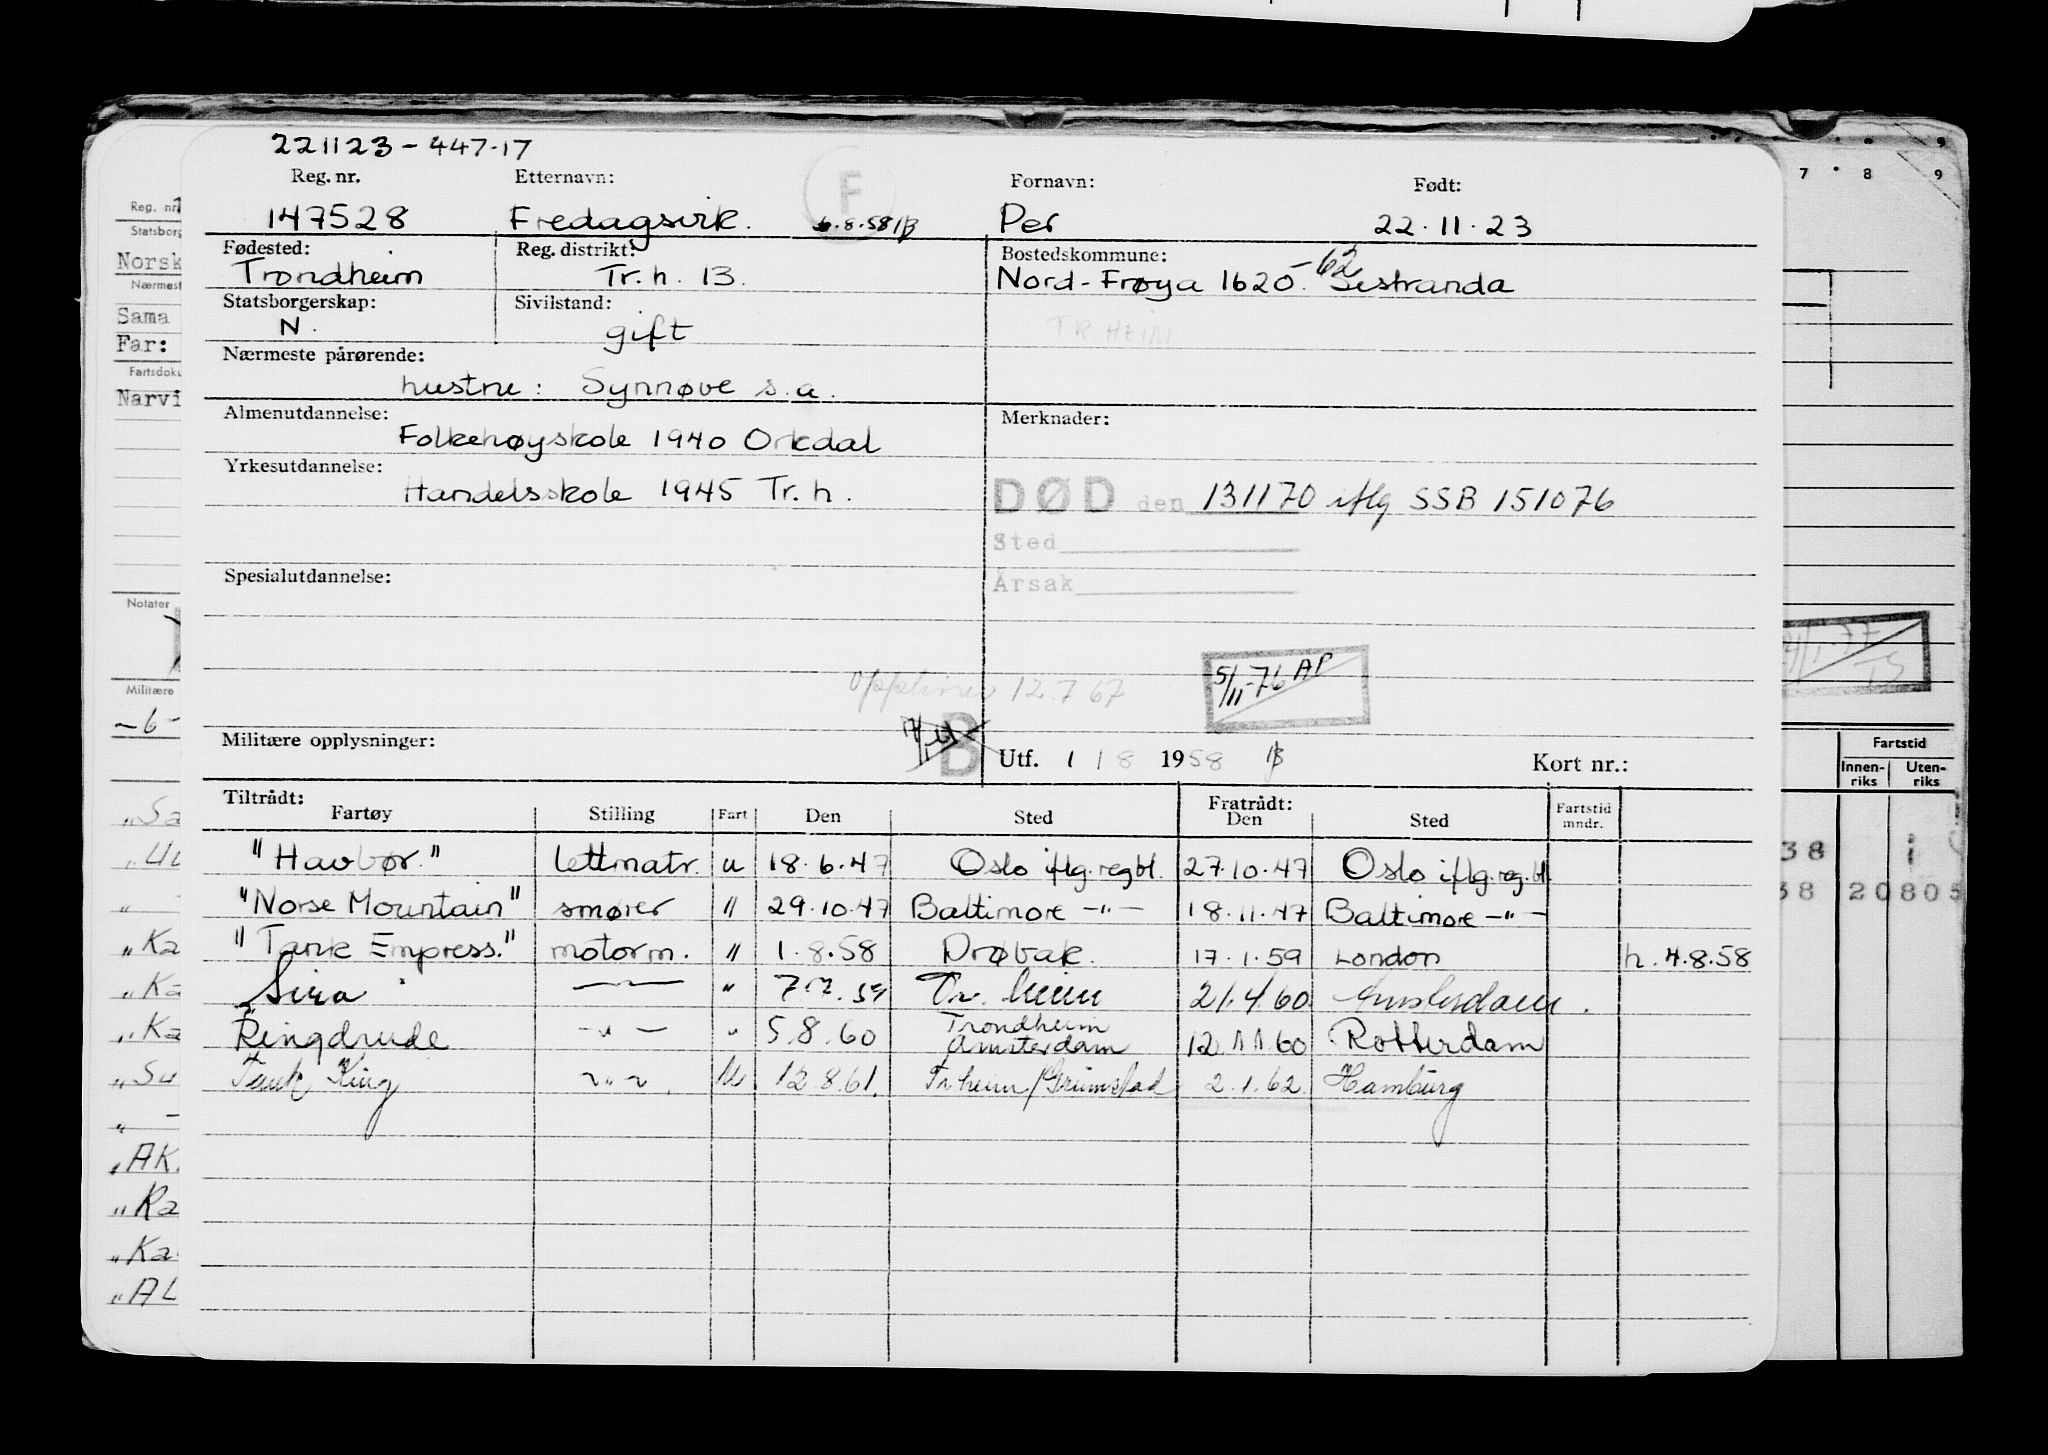 221123-447-17
Reg. nr. Etternavn: F Fornavn: Født:
147528 Fredagsvik. 6.8.58 Per 22.11.23
Fødested: Reg. distrikt: Bostedskommune:
Trondheim Tr.h. 13. Nord-Frøya 1620. -62 Sistranda
Statsborgerskap: Sivilstand:
N. gift TR.HEIM
Nærmeste pårørende:
hustru: Synnøve s.a.
Almenutdannelse: Merknader:
Folkehøyskole 1940 Orkdal
Yrkesutdannelse:
Handelsskole 1945 Tr.h. DØD den 131170 iflg SSB 151076
Sted
Årsak
Spesialutdannelse:
12.7 67 5/11-76 AP
B
Militære opplysninger: Utf. 1/8 1958 Kort nr.:
Tiltrådt: Fratrådt:
Fartøy Stilling Fart Den Sted Den Sted Fartstid mndr.
"Havbør." lettmatr. u 18.6.47 Oslo iflg.regbl. 27.10.47 Oslo iflg.reg.bl.
"Norse Mountain" smører " 29.10.47 Baltimore -"- 18.11.47 Baltimore -"-
"Tank Empress." motorm. " 1.8.58 Drøbak. 17.1.59 London h. 4.8.58
Sira " 59 Tr.heim 21.4.60 Amsterdam.
Ringdrude -"- " 5.8.60 Trondheim Amsterdam 12.11.60 Rotterdam
Tank King -"- U 12.8.61. Tr heim/Grimstad 2.1.62. Hamburg
Reg. nr.
Statsborg
Norsk
Nærmest
Sama
Far:
Fartsdoku
Narvi
Notater
Militære
-6-
„Sa
„Ka
„Ka
„Ka
„Su
„AK.
„Ra
„Ka
„AL
7 8 9
9
Fartstid
Innen-riks Uten-riks
38
38 20805